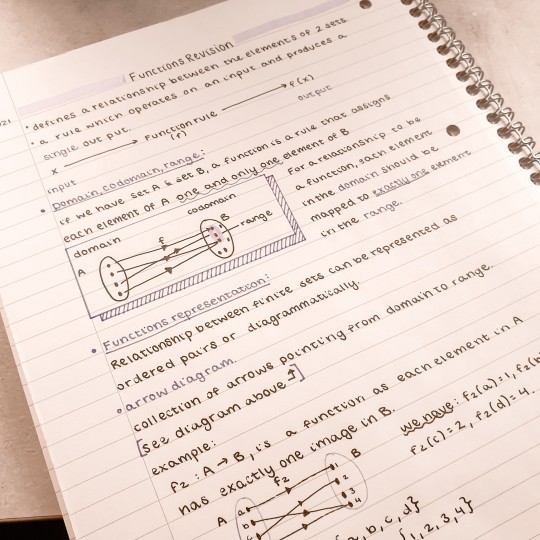 Functions Revision
• defines a relationship between the elements of 2 sets.
• a rule which operates on an input and produces a
single out put.
x → Function rule (f) → f(x)
input
output
• Domain, codomain, range:
if we have set A & set B, a function is a rule that assigns
each element of A one and only one element of B
domain
codomain
A
f
B
range
For a relationship to be
a function, each element
in the domain should be
mapped to exactly one element
in the range.
• Functions representation:
Relationship between finite sets can be represented as
ordered pairs or diagrammatically.
• arrow diagram.
collection of arrows pointing from domain to range.
[see diagram above ↑]
example:
f₂ : A → B, is a function as each element in A
has exactly one image in B.
we have: f₂(a)=1, f₂(b
f₂(c)=2, f₂(d)=4.
A
f₂
B
a
b
c
1
2
3
4
a, b, c, d}
1, 2, 3, 4}